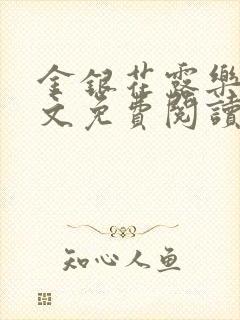 金銀花露樂
文免費閱讀
知心人鱼